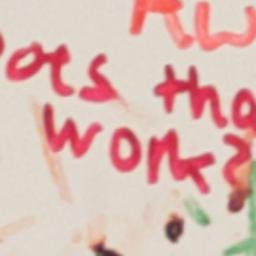 Does tha
work?